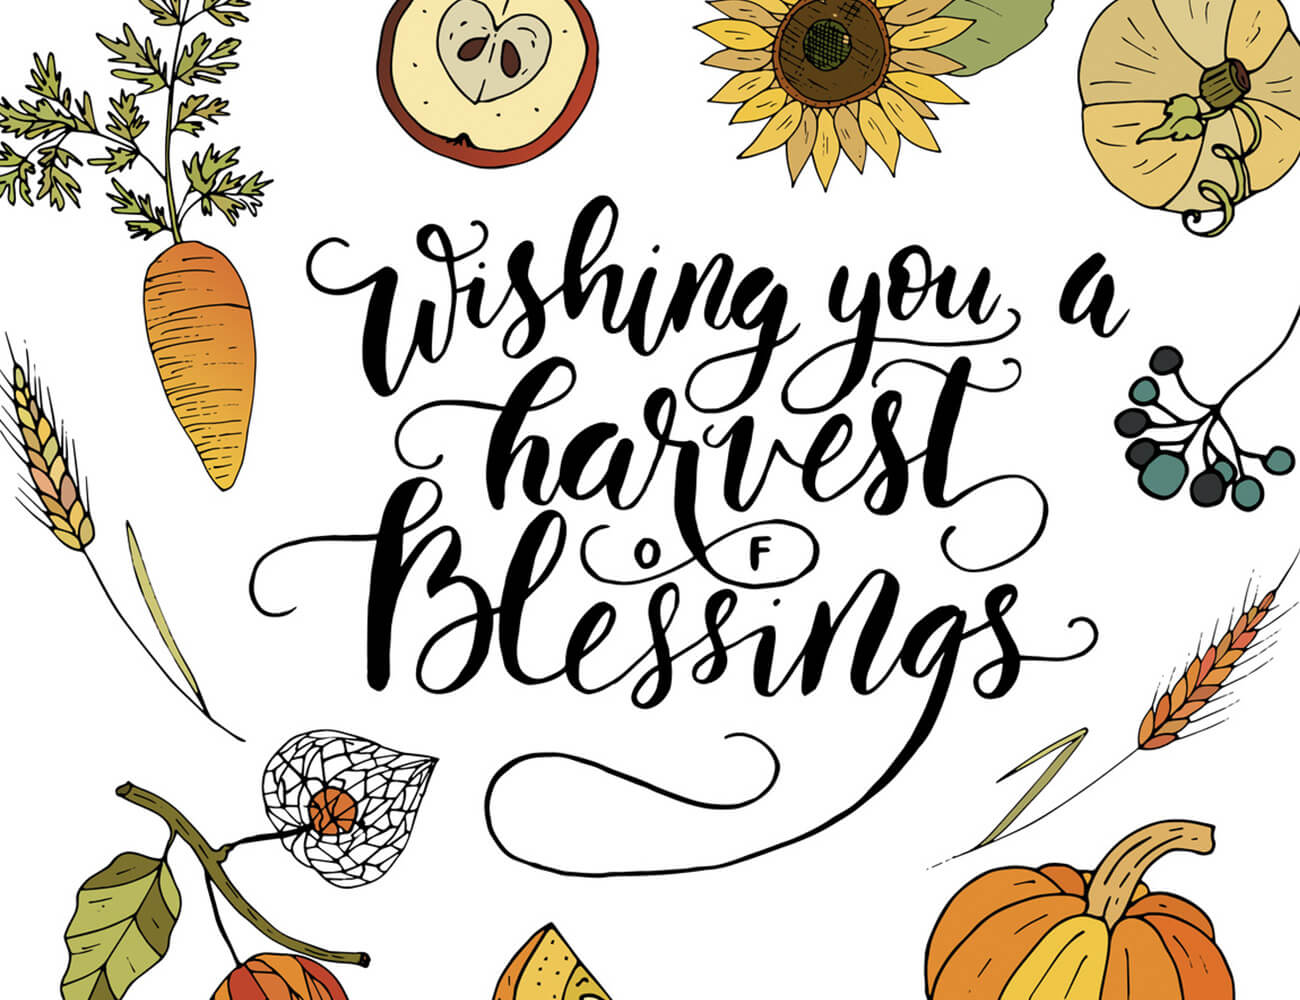 Wishing you a
harvest
OF
Blessings